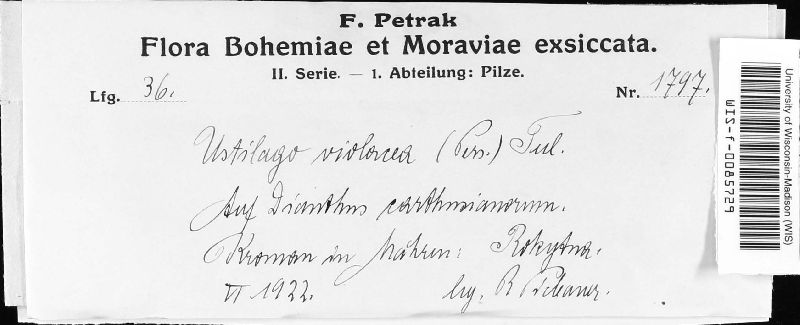 F. Petrak
Flora Bohemiae et Moraviae exsiccata.
II. Serie. — 1. Abteilung: Pilze.
Lfg. 36. Nr. 1797.
Ustilago violacea (Pers.) Tul.
Auf Dianthus carthusianorum.
Kroman in Mähren: Rokytna.
VI 1922. lg. R. Picbauer.
University of Wisconsin-Madison (WIS)
WIS-f-0085729